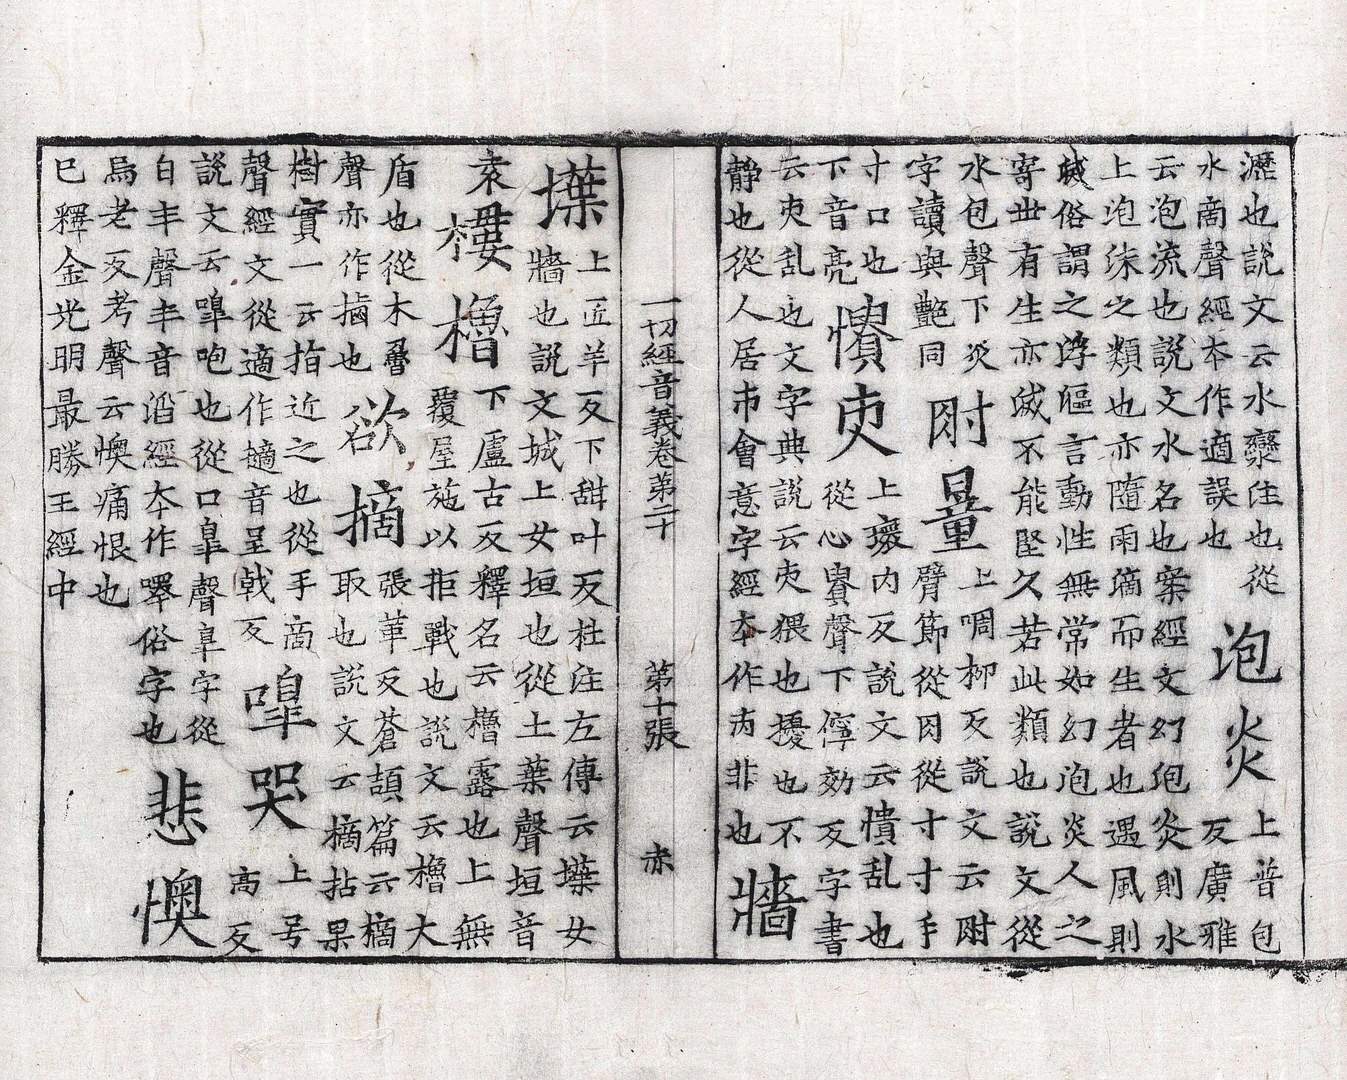 瀝也説文云水欒注也從
水啇聲經本作適誤也
泡炎
上普包
反廣雅
云泡流也説文水名也案經文幻炮炎則水
上泡沫之類也亦隨雨滴而生者也遇風則
㓕俗謂之浮漚言動性無常如幻泡炎人之
寄世有生亦㓕不能堅久若此類也説文從
水包聲下炎
字讀與艷同
肘量
上啁柳反説文云肘
臂節從肉從寸寸手
寸口也
下音亮
憒吏
上瓌内反説文云憒乱也
從心貴聲下儜効反字書
云吏乱也文字典説云吏猥也擾也不
靜也從人居市會意字經本作丙非也
牆
一切經音義卷第二十 第十張 赤
堞
上匠羊反下甜叶反杜注左傳云堞女
牆也説文城上女垣也從土葉聲垣音
袁
樓櫓
下盧古反釋名云櫓露也上無
覆屋施以拒戰也説文云櫓大
盾也從木魯
聲亦作㯭也
欲摘
張革反蒼頡篇云摘
取也説文云摘拈果
樹實一云指近之也從手啇
聲經文從適作擿音呈戟反
嘷哭
上号
高反
説文云嘷咆也從口皐聲皐字從
白丰聲丰音滔經本作嘷俗字也
悲懊
烏老反考聲云懊痛恨也
已釋金光明最勝王經中